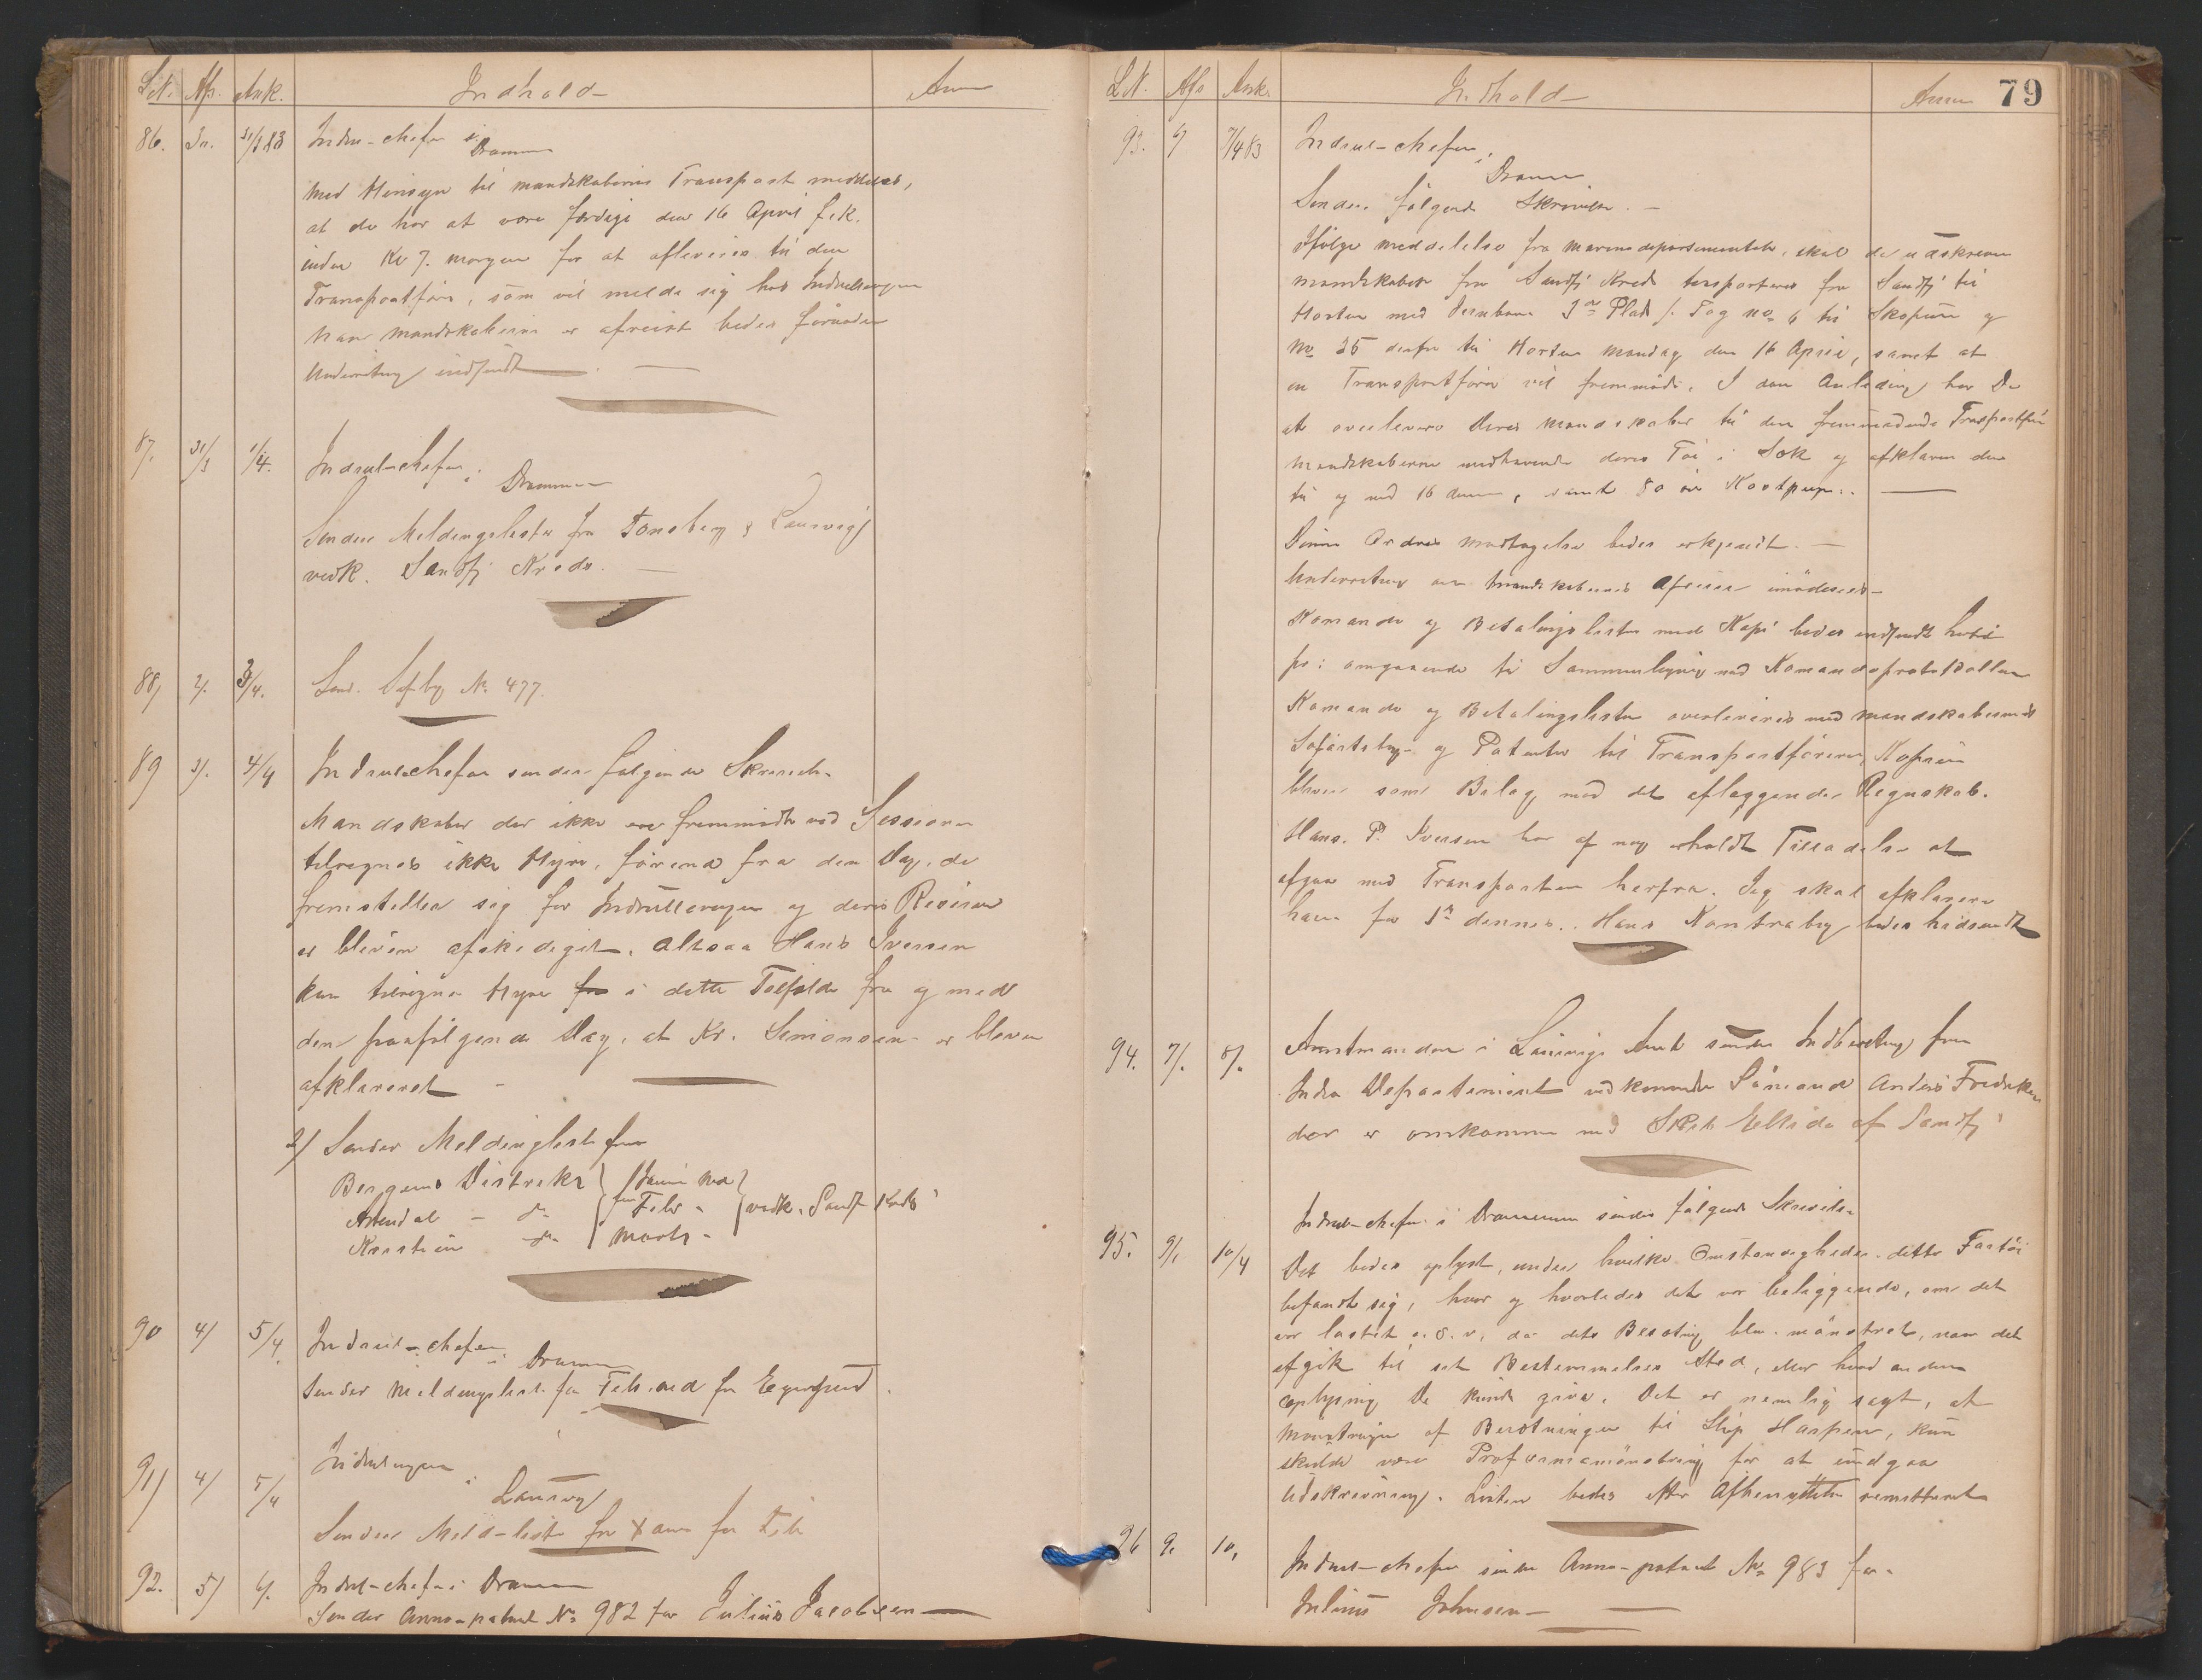 L.N. Afs. Ank. Indhold Anm
86. 31/3 83 Indrul-chefen i
Drammen
Med Hensyn til mandskabernes Transport meddeles,
at de har at være færdige den 16 April f.K.
inden Kl 7. morgen for at afleveres til den
Transportfører, som vil melde sig hos Indrulleringen
naar mandskaberne er afreist bedes
Underretning indsendt
87. 31/3 1/4. Indrul-chefen i
Drammen
Sender Meldingslister fra Tønsberg & Laurvig
vedk. Sandfj Kreds.
88, 2/. 3/4. Send. No 477.
89 3/. 4/4 Indrul-chefen sender følgende Skrivelse
Mandskaber der ikke ere fremmødte ved Sessionen
tilregnes ikke Hyre, førend fra den Dag, de
fremstiller sig for Indrulleringen og deres Reserver
er bleven afskediget, altsaa Hans Iversen
kan tilregnes Hyre fra i dette Tilfælde fra og med
den paafølgende Dag, at Kr. Simonsen er bleven
afklareret
2/ Sender Meldingsliste fra
Bergens Distrikt } Januar Md }
Arendal - do } for Febr - } vedk. Sandf Kreds
Kristian - do } Marts -
90 4/ 5/4. Indrul-chefen
i Drammen
Sender Meldingsliste for Feb. md fra Egersund.
91/ 4/ 5/4 Indrulleringen
i Laurvig
Sender Meld-liste for Feb
92. 5/ 6/. Indrul-chefen i Drammen
Sender Anno-patent No 982 for Julius Jacobsen
L.N. Afs Ank. Indhold Anm 79
93. 6/ 7/4 83 Indrul-chefen i
Drammen
Sender følgende Skrivelse.
Ifølge meddelelse fra marinedepartementet, skal de udskrevne
mandskaber fra Sandfj Kreds transporteres fra Sandfj til
Horten med Jernbane 3die Plads /. Tog no 6 til Skopum og
No 35 derfra til Horten mandag den 16 April, samt at
en Transportfører vil fremmøde. I den Anledning har De
at overlevere Deres mandskaber til den fremmødende Transportfører
mandskaberne medhavende deres Tøi i Sæk og afklarere dem
til og med 16 dennes, samt 80 øre Kostpenge.
Denne Ordres modtagelse bedes erkjendt.
Underretning om mandskabernes Afreise imødesees
Komando og Betalingslister med Kopi bedes indsendt hertil
pr. omgaaende til Sammenligning med Komandoprotokollen
Komando og Betalingslister overleveres med mandskabernes
Søfartsbog og Patenter til Transportføreren, Kopien
bliver som Bilag med det aflæggende Regnskab.
Hans. P. Iversen har af mig erholdt Tilladelse at
afgaa med Transporten herfra. Jeg skal afklarere
ham for dennes. Hans Kontrabog bedes hidsendt
94. 7/. 8/. Amtmanden i Laurvigs Amt sender Indberetning fra
Indre Departement vedkommende Sømand Anders Fredriksen
der er omkommen med Skib Ellida af Sandfj
95. 9/. 10/4 Indrul-chefen i Drammen sender følgende Skrivelse
Det bedes oplyst, under hvilke Omstændigheder dette Fartøi
befandt sig, hvor og hvorledes det var beliggende, om det
var lastet o.s.v. da dets Besætning blev mønstret, naar det
afgik til sit Bestemmelses Sted, eller hvad anden
oplysning De kunde give. Det er nemlig sagt, at
Mønstringen af Besætningen til Skip Harpen, kun
skulde være Proformamønstring for at undgaa
Udskrivning. Listen bedes efter Afbenyttelse remitteret
96 9. 10, Indrul-chefen sender Anno-patent No 983 for
Julius Johnsen